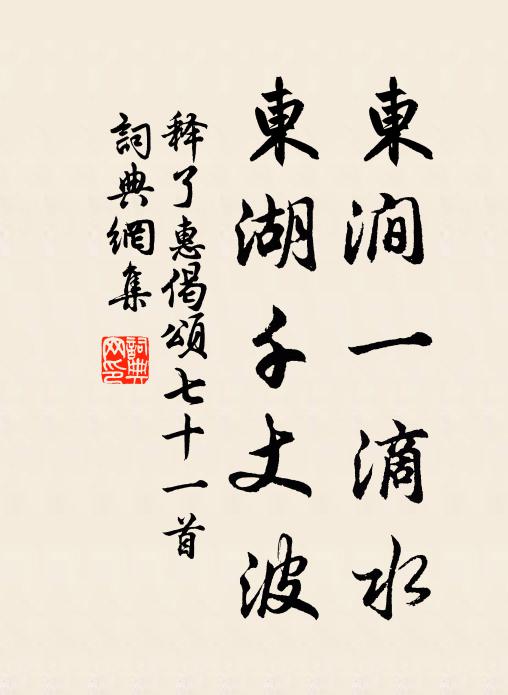 東澗一滴水
東湖千丈波
释了惠偈頌七十一首
詞典網集
詞典网印